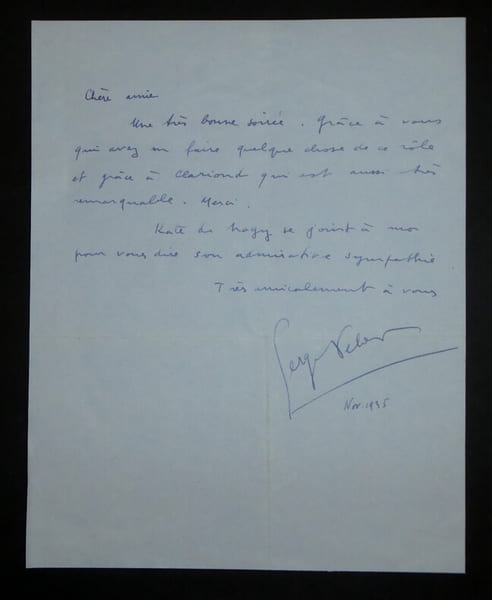 Chère amie
Une très bonne soirée. Grâce à vous
qui avez su faire quelque chose de ce rôle
et grâce à Clariond qui est aussi très
remarquable. Merci.
Kate de Nagy se joint à moi
pour vous dire son admirative sympathie
Très amicalement à vous
Nov. 1935